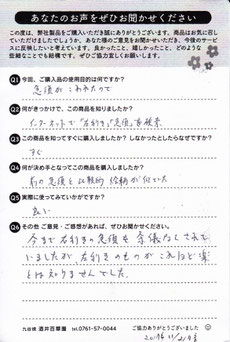 あなたのお声をぜひお聞かせください
この度は、弊社製品をご購入いただき誠にありがとうございます。商品はお気に召して
いただけましたでしょうか。あなた様のご意見をお聞かせいただき、今後のサービス
に反映したいと考えています。良かったこと、嬉しかったこと、どのような
些細なことでも結構です。ぜひご協力宜しくお願いします。
Q1 今回、ご購入品の使用目的は何ですか?
急須がこわれたので
Q2 何がきっかけで、この商品を知りましたか?
インターネットで "左利き 急須" を検索
Q3 この商品を知ってすぐに購入しましたか? しなかったとしたらなぜですか?
すぐ
Q4 何が決め手となってこの商品を購入しましたか?
前の急須と比較的絵柄が似ていた
Q5 実際に使ってみていかがですか?
良い
Q6 その他 ご意見・ご感想があれば、ぜひお聞かせください。
今まで右利きの急須を余儀なくされて
いましたが、左利きのものがこれほど楽
とは知りませんでした。
九谷焼 酒井百華園 tel.0761-57-0044
ご協力ありがとうございました